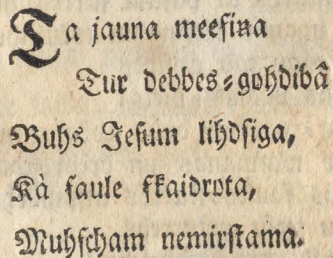 Ta jauna meesiņa
Tur debbes-gohdibâ
Buhs Jesum lihdsiga,
Kà saule skaidrota,
Muhscham nemirstama.